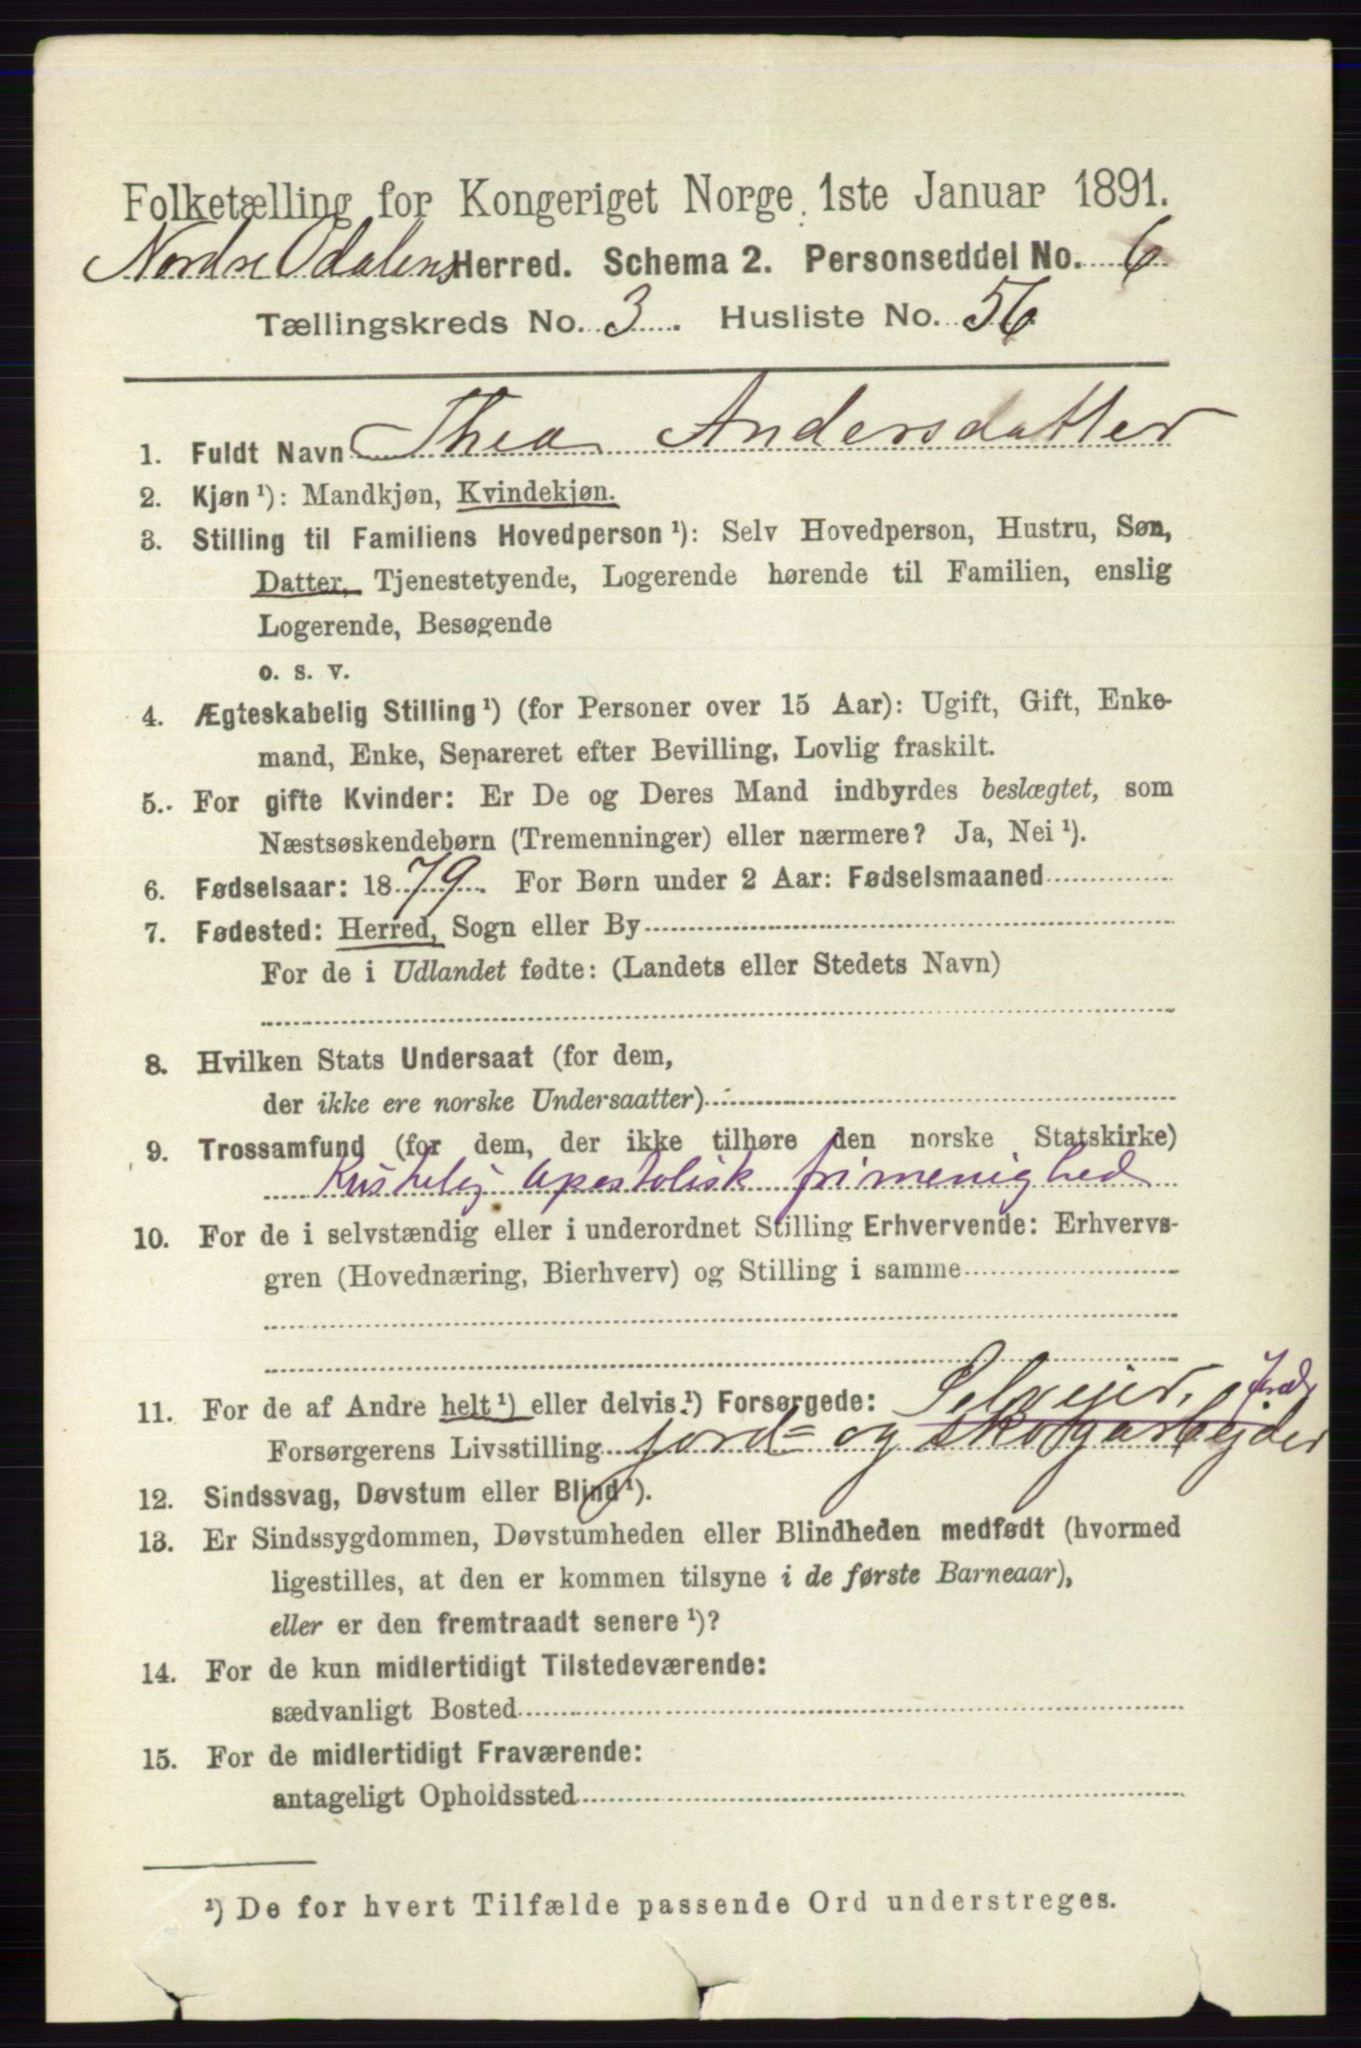 Folketælling for Kongeriget Norge 1ste Januar 1891.
Nordre Odalens Herred. Schema 2. Personseddel No. 6
Tællingskreds No. 3. Husliste No. 56
1. Fuldt Navn Thea Andersdatter
2. Kjøn ¹): Mandkjøn, Kvindekjøn.
3. Stilling til Familiens Hovedperson ¹): Selv Hovedperson, Hustru, Søn,
Datter, Tjenestetyende, Logerende hørende til Familien, enslig
Logerende, Besøgende
o. s. v.
4. Ægteskabelig Stilling ¹) (for Personer over 15 Aar): Ugift, Gift, Enke-
mand, Enke, Separeret efter Bevilling, Lovlig fraskilt.
5. For gifte Kvinder: Er De og Deres Mand indbyrdes beslægtet, som
Næstsøskendebørn (Tremenninger) eller nærmere? Ja, Nei ¹).
6. Fødselsaar: 1879. For Børn under 2 Aar: Fødselsmaaned
7. Fødested: Herred, Sogn eller By
For de i Udlandet fødte: (Landets eller Stedets Navn)
8. Hvilken Stats Undersaat (for dem,
der ikke ere norske Undersaatter)
9. Trossamfund (for dem, der ikke tilhøre den norske Statskirke)
Kristelig apostolisk frimenighed
10. For de i selvstændig eller i underordnet Stilling Erhvervende: Erhvervs-
gren (Hovednæring, Bierhverv) og Stilling i samme
11. For de af Andre helt ¹) eller delvis ¹) Forsørgede: Selveier,
Forsørgerens Livsstilling jord= og skogarbejder
12. Sindssvag, Døvstum eller Blind ¹).
13. Er Sindssygdommen, Døvstumheden eller Blindheden medfødt (hvormed
ligestilles, at den er kommen tilsyne i de første Barneaar),
eller er den fremtraadt senere ¹)?
14. For de kun midlertidigt Tilstedeværende:
sædvanligt Bosted
15. For de midlertidigt Fraværende:
antageligt Opholdssted
¹) De for hvert Tilfælde passende Ord understreges.